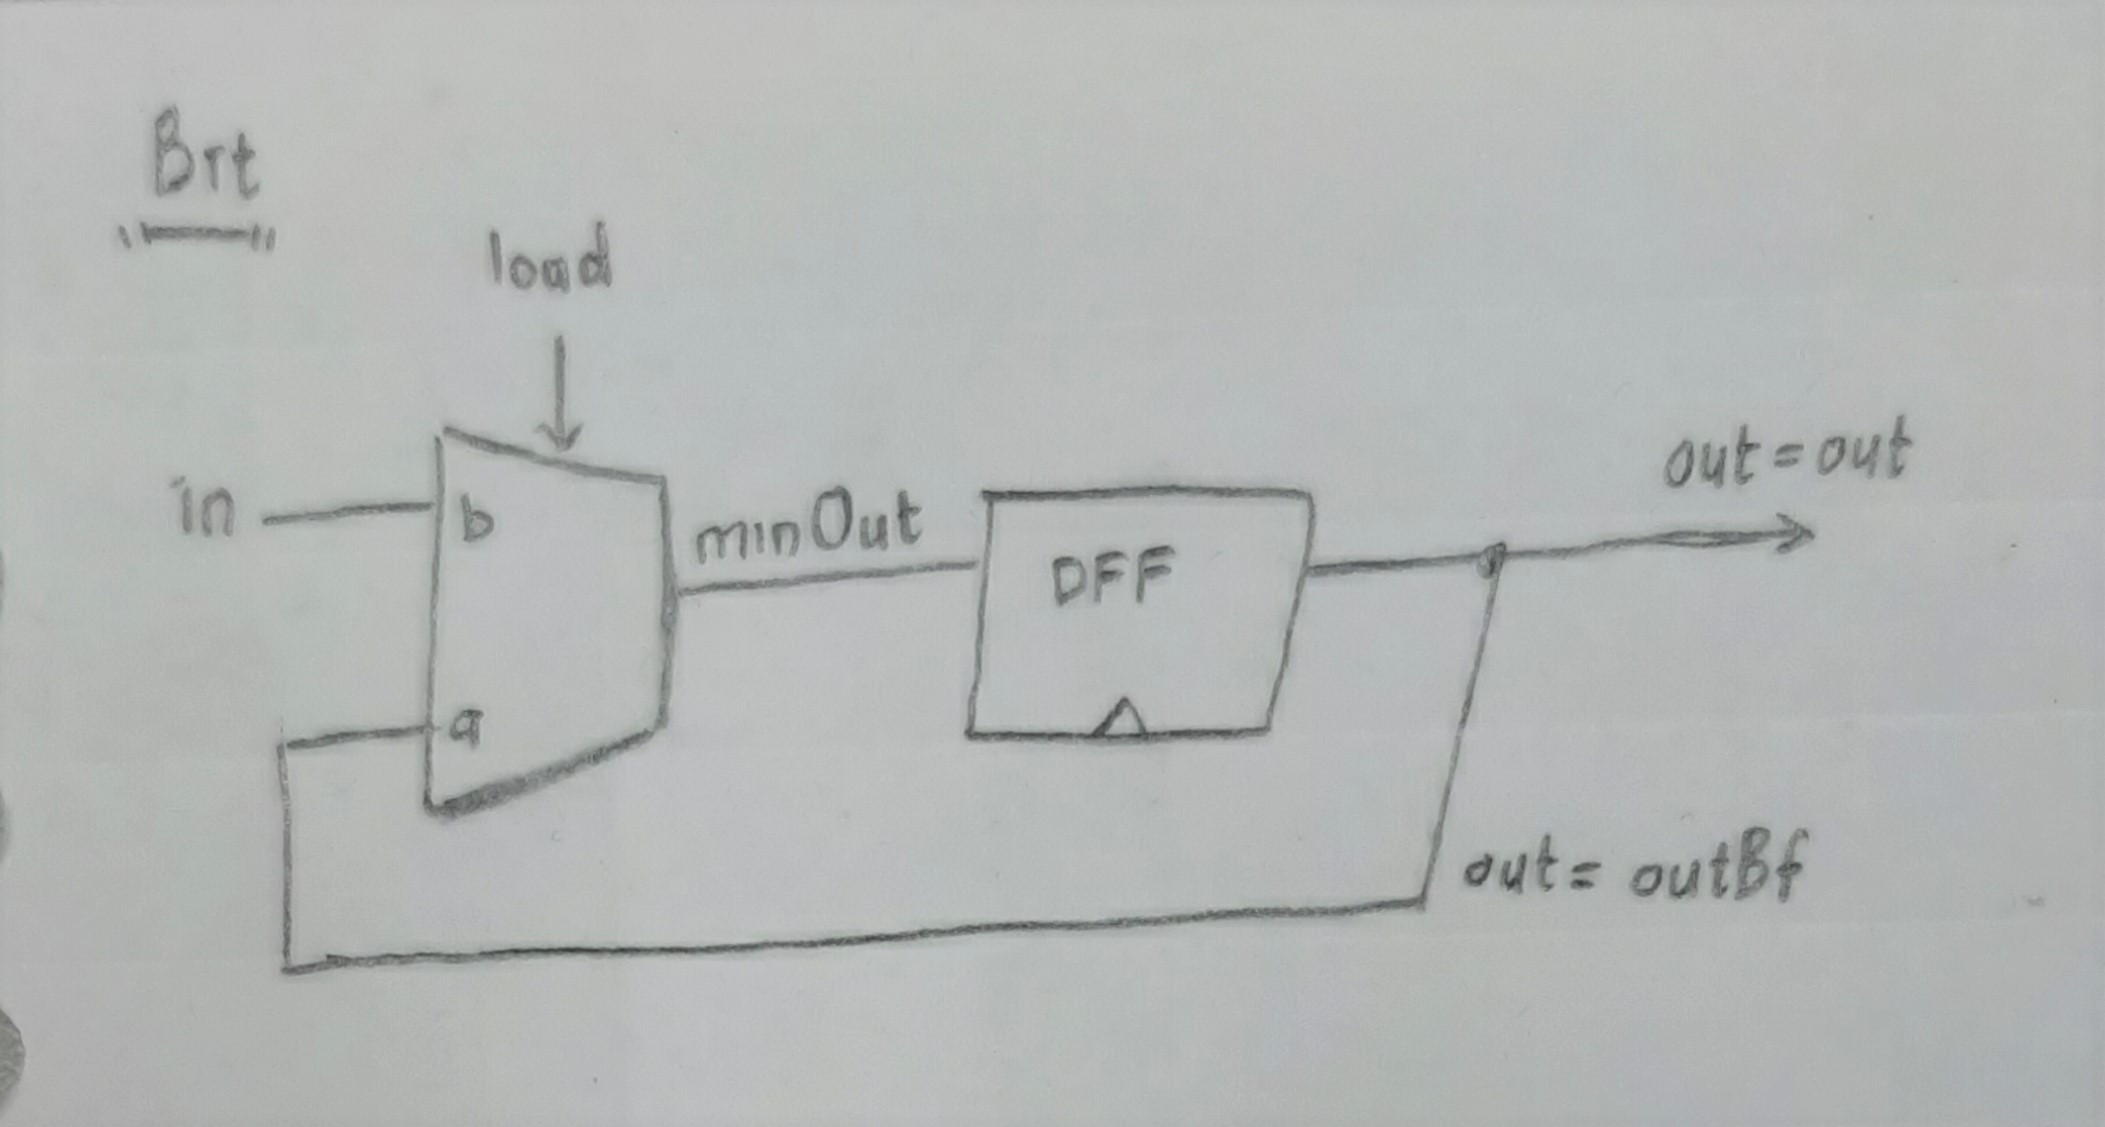 Brt
load
in
b
minOut
DFF
out = out
a
out = outBf